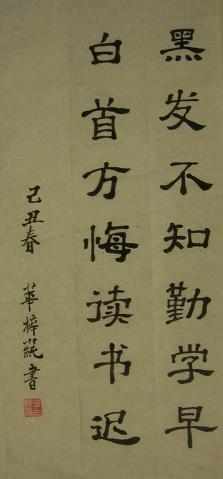 黑发不知勤学早
白首方悔读书迟
己丑春
华梓莼書